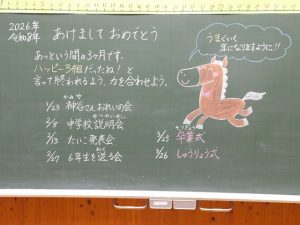 2026年
令和8年
あけまして おめでとう
あっという間の3ヶ月です。
ハッピー3組だったね！と
言って終われるよう、力を合わせよう。
かみや
1/23 神谷さんお礼の会
せつめいかい
2/5 中学校説明会
2/13 たいこ発表会
おく
2/27 6年生を送る会
うまくいく
年になりますように!!
そつぎょう
3/25 卒業式
3/26 しゅうりょう式